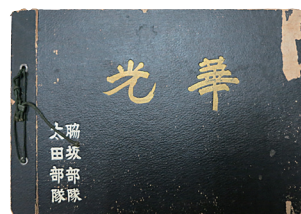 華光
脇坂部隊
太田部隊